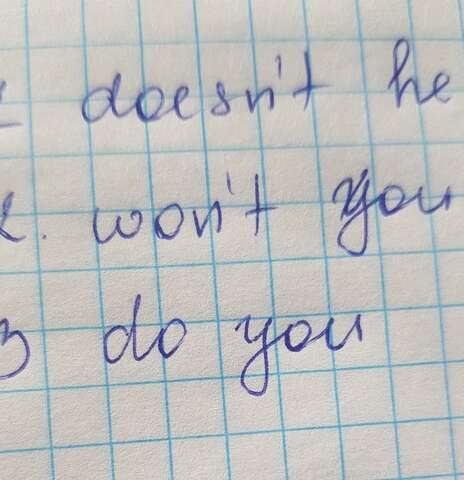 1 doesn't he
2. won't you
3 do you